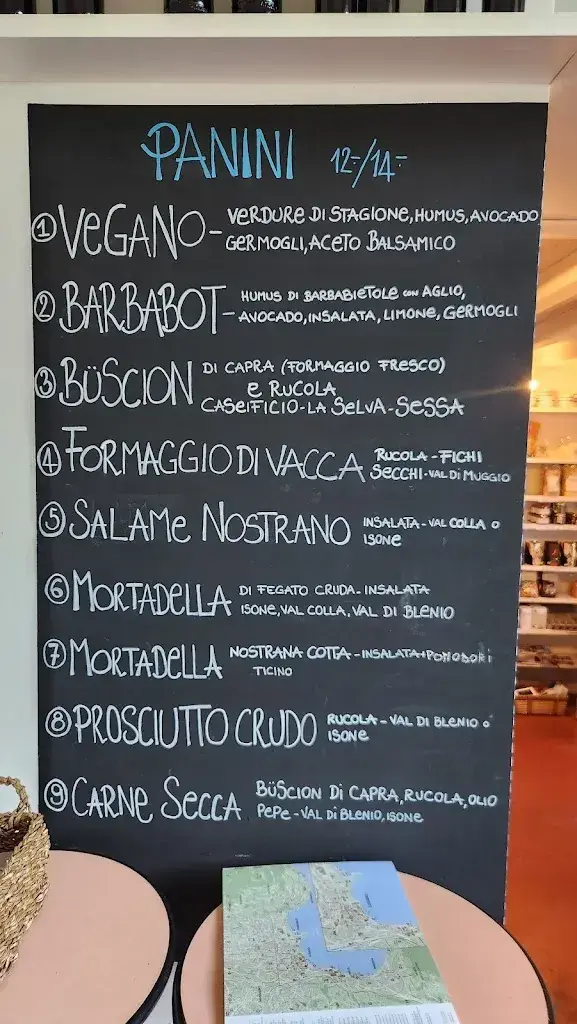 PANINI 12.-/14.-
① VEGANO - VERDURE DI STAGIONE, HUMUS, AVOCADO
GERMOGLI, ACETO BALSAMICO
② BARBABOT - HUMUS DI BARBABIETOLE con AGLIO,
AVOCADO, INSALATA, LIMONE, GERMOGLI
③ BÜSCION DI CAPRA (FORMAGGIO FRESCO)
E RUCOLA
CASEIFICIO - LA SELVA - SESSA
④ FORMAGGIO DI VACCA RUCOLA - FICHI
SECCHI - VAL DI MUGGIO
⑤ SALAME NOSTRANO INSALATA - VAL COLLA O
ISONE
⑥ MORTADELLA DI FEGATO CRUDA - INSALATA
ISONE, VAL COLLA, VAL DI BLENIO
⑦ MORTADELLA NOSTRANA COTTA - INSALATA + POMODORI
TICINO
⑧ PROSCIUTTO CRUDO RUCOLA - VAL DI BLENIO O
ISONE
⑨ CARNE SECCA BÜSCION DI CAPRA, RUCOLA, OLIO
PEPE - VAL DI BLENIO, ISONE